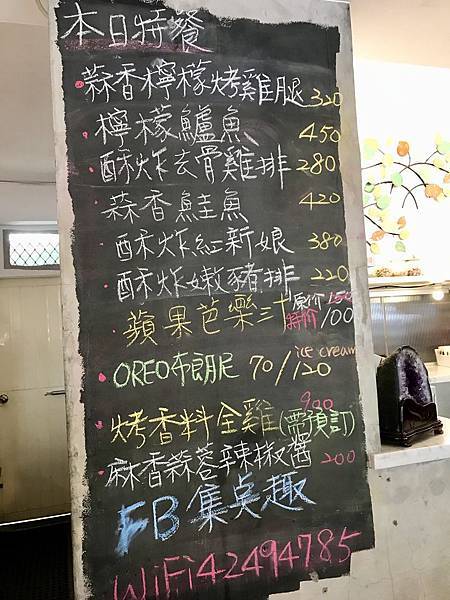 本日特餐
蒜香檸檬烤雞腿 320
檸檬鱸魚 450
酥炸去骨雞排 280
蒜香鮭魚 420
酥炸紅新娘 380
酥炸嫩豬排 220
蘋果芭樂汁 原价150
特价/100
OREO布朗尼 70/120 ice cream
900
烤香料全雞(需預訂)
麻香蒜蓉辣椒醬 200
FB集桌趣
WiFi42494785